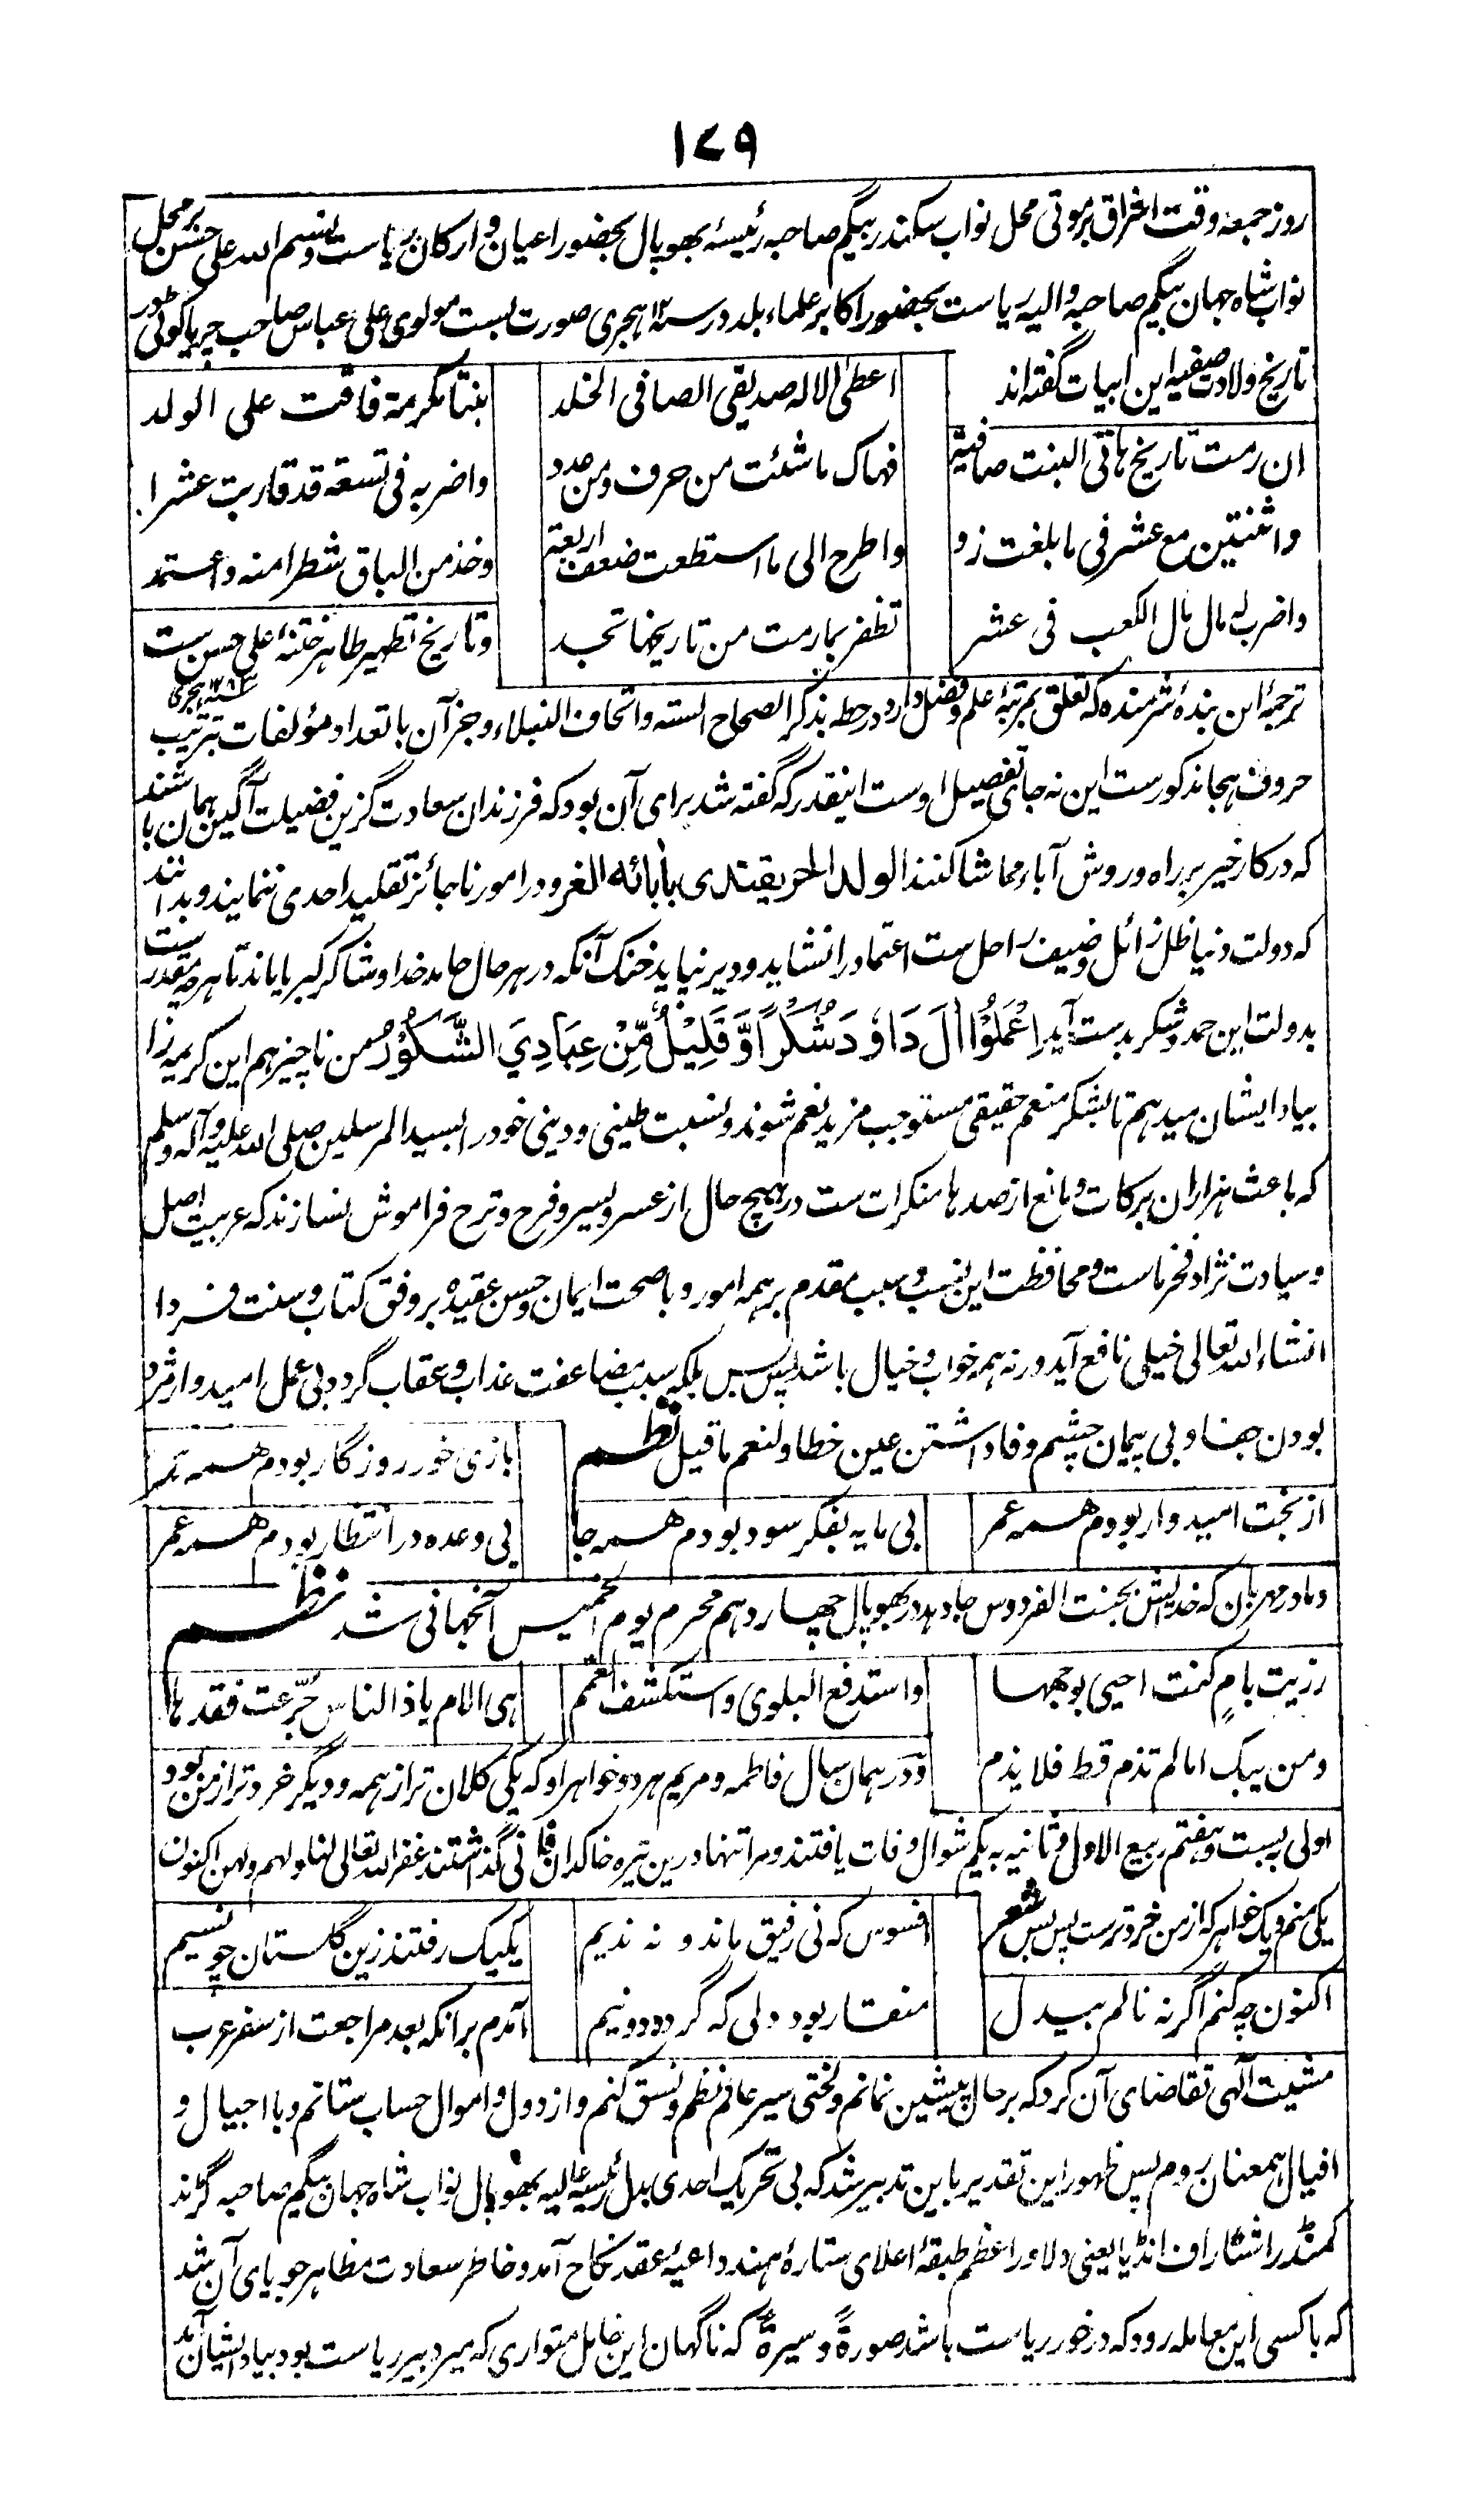 ۱۷۹
روز جمعه وقت اشراق بر موتی محل نواب سکندر بیگم صاحبه رئیسهٔ بھوپال بحضور اعیان و ارکان ریاست و بسم الله علی حسن بر محل
نواب شاه جهان بیگم صاحبه والیه ریاست بحضور اکابر علماء بلد در سنه ۱۲ هجری صورت بست مولوی علی عباس صاحب چریاکوٹی در
تاریخ ولادت صفیه این ابیات گفته اند
اعطی الاله صدیقی الصافی الخلد
بنتا مکرمة فاقت علی الولد
ان رمت تاریخ هاتی البنت صافیة
فهاک ما شئت من حرف ومن عدد
واضربه فی تسعة قد قاربت عشرا
واثنتین مع عشر فی ما بلغت زد
واطرح الی ما استطعت ضعف اربعة
وخذ من الباق شطرا منه واعتمد
واضرب له مال مال الکعب فی عشر
تظفر بما رمت من تاریخها تجد
و تاریخ تطهیر طاهر ختنهٔ علی حسن ست
۱۲۸۳ هجری
ترجمهٔ این بندهٔ شرمنده که تعلق بمرتبهٔ علم و فضل دارد در حطه بذکر الصحاح السته و اتحاف النبلاء و جز آن با تعداد مؤلفات بترتیب
حروف هجا مذکور ست این نه جای تفصیل اوست اینقدر که گفته شد برای آن بود که فرزندان سعادت گزین فضیلت آگین همان باشند
که در کار خیر بر راه و روش آباء مماشا کنند الولد الحر یقتدی بآبائه الغر و در امور ناجائز تقلید احدی ننمایند و بدانند
که دولت دنیا ظل زائل و ضیف راحل ست اعتماد را نشاید و دیر نپاید خنک آنکه در هر حال حامد خدا و شاکر کبریا ماند تا هر چه مقدر ست
بدولت این حمد و شکر بدست آید اِعْمَلُوْا اٰلَ دَاوٗدَ شُكْرًا وَّقَلِيْلٌ مِّنْ عِبَادِيَ الشَّكُوْرُ من ناچیز هم این کریمه را
بیاد ایشان میدهم تا بشکر منعم حقیقی مستوجب مزید نعم شوند و نسبت طینی و دینی خود را بسید المرسلین صلی الله علیه وآله وسلم
که باعث هزاران برکات و مانع از صدها منکرات ست در هیچ حال از عسر و یسر و فرح و ترح فراموش نسازند که عربیت اصل
و سیادت نژاد فخر ماست و محافظت این نسب و سبب مقدم بر همه امور و با صحت ایمان و حسن عقیده بر وفق کتاب و سنت فردا
انشاء الله تعالی خیلی نافع آید ورنه همه خواب و خیال باشد پس بس بلکه سبب مضاعفت عذاب و عقاب گردد بی عمل امیدوار مزد
بودن جفا و بی پیمان چشم وفا داشتن عین خطا ولنعم ما قیل نظم
بازی خور روزگار بودم همه عمر
از بخت امیدوار بودم همه عمر
بی مایه بفکر سود بودم همه جا
بی وعده در انتظار بودم همه عمر
و مادر مهربان که خدایش بجنت الفردوس جا دهد در بھوپال چهاردهم محرم یوم الخمیس آنجهانی شد نظم
رزیت بامٍ کنت احیی بوجهها
واستدفع البلوی واستکشف الغمم
هی الام یا ذا الناس جُرّعت فقدها
ومن یبک اما لم تذم قط فلا یذم
و در همان سال فاطمه و مریم هر دو خواهر او که یکی کلان تر از همه و دیگر خرد تر از من بود
اولی به بست و هفتم ربیع الاول و ثانیه به یکم شوال وفات یافتند و مرا تنها درین تیره خاکدان فانی گذاشتند غفر الله تعالی لنا ولهم ولهن اکنون
یکی منم و یک خواهر که از من خرد ترست پس بس شعر
افسوس که نی رفیق ماند و نه ندیم
یکیک رفتند زین گلستان چو نسیم
اکنون چه کنم اگر نه نالم بیدل
منقار بود دلی که گردد دو نیم
آمدم بر آنکه بعد مراجعت از سفر عرب
مشیت آلهی تقاضای آن کرد که بر حال پیشین نمانم و لختی سیر عالم نظم و نسق کنم و از دول و اموال حساب ستانم و با اجیال و
افیال همعنان روم پس ظهور این تقدیر باین تدبیر شد که بی تحریک احدی بدل رئیسهٔ عالیه بھوپال نواب شاه جهان بیگم صاحبه گرند
کمنڈر استار اف انڈیا یعنی دلاور اعظم طبقهٔ اعلای ستارهٔ هند داعیهٔ عقد نکاح آمد و خاطر سعادت مظاهر جویای آن شد
که با کسی این معامله رود که در خور ریاست باشد صورةً و سیرةً که ناگهان این خامل متواری که میر دبیر ریاست بود بیاد ایشان آمد